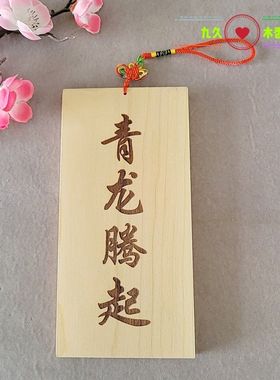 九久❤木香
青龙腾起